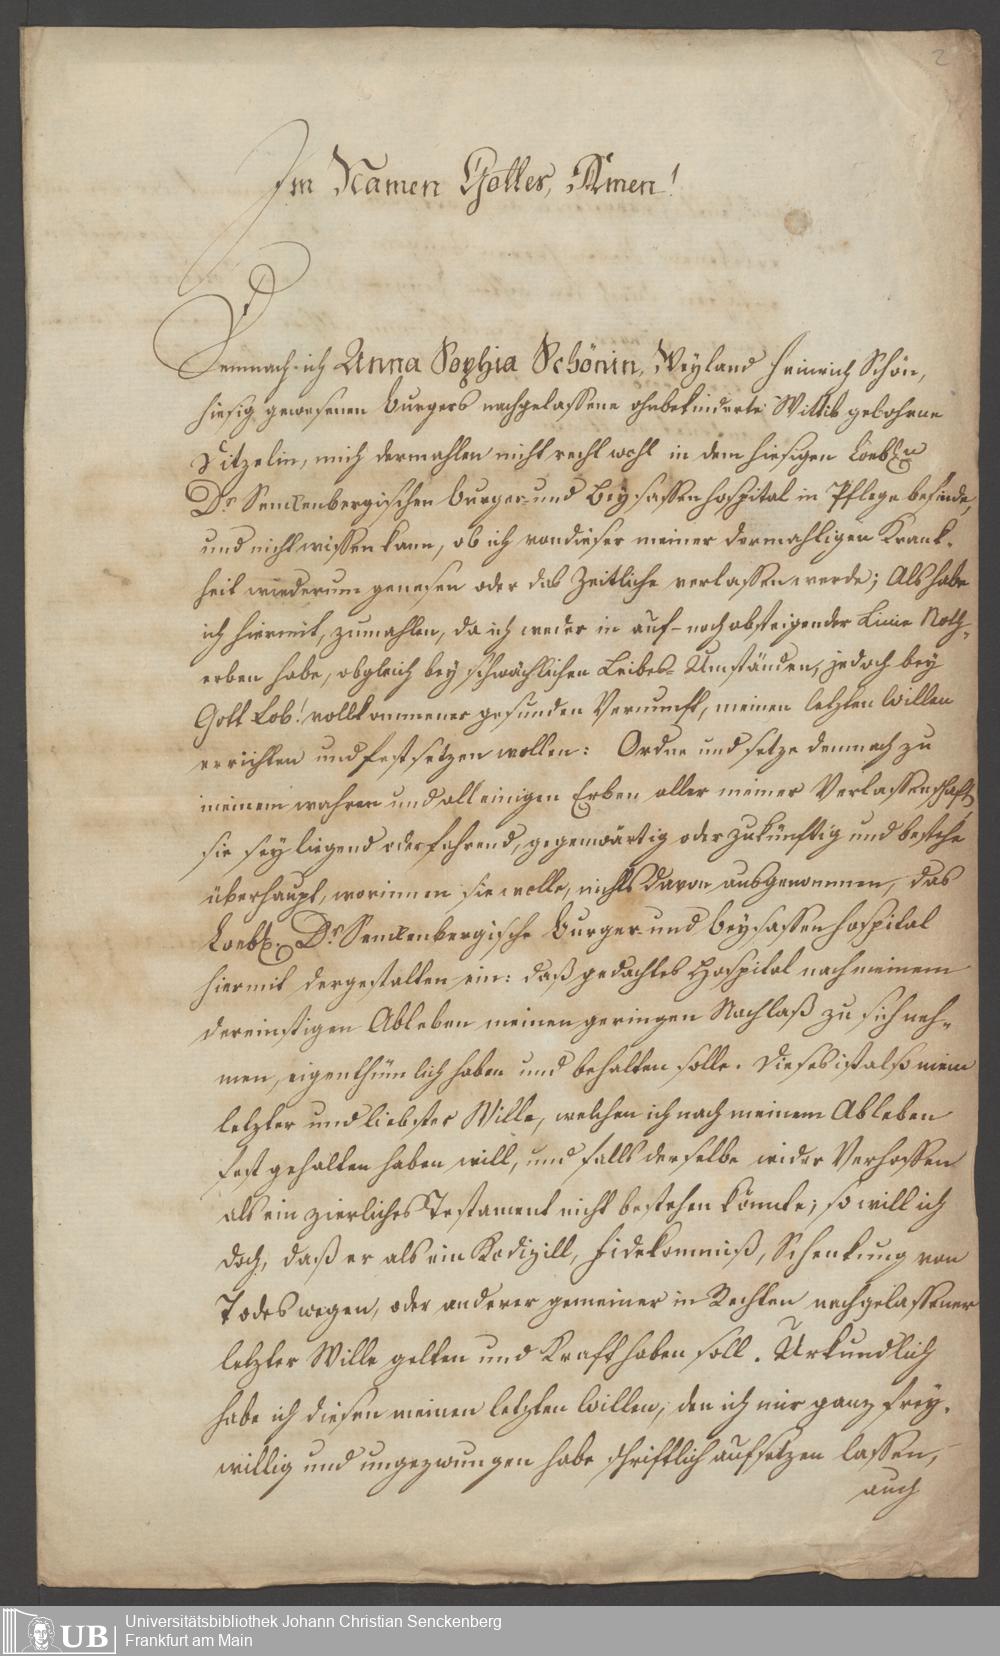 2
Im Namen Gottes, Amen!
Demnach ich Anna Sophia Schönin, Weyland Heinrich Schön,
hiesig gewesenen Burgers nachgelassene ohnbekinderte Wittib gebohrne
Sitzelin, mich dermahlen nicht recht wohl in dem hiesigen Loebl.n
Dr Senckenbergischen Burger- und Beysassenhospital in Pflege befinde,
und nicht wissen kann, ob ich von dieser meiner dermahligen Krank-
heit wiederum genesen oder das Zeitliche verlassen werde; Als habe
ich hiermit, zumahlen, da ich weder in auf- noch absteigender Linie Noth-
erben habe, obgleich bey schwächlichen Leibes-Umständen, jedoch bey
Gott Lob! vollkommener gesunden Vernunft, meinen letzten Willen
errichten und festsetzen wollen: Ordne und setze demnach zu
meinem wahren und alleinigen Erben aller meiner Verlassenschaft,
sie sey liegend oder fahrend, gegenwärtig oder zukünftig und bestehe
überhaupt, worinnen sie wolle, nichts davon ausgenommen, das
Loebl. Dr Senckenbergische Burger und Beysassenhospital
hiermit dergestalten ein: daß gedachtes Hospital nach meinem
dereinstigen Ableben meinen geringen Nachlaß zu sich neh-
men, eigenthümlich haben und behalten solle. Dieses ist also mein
letzter und liebster Wille, welchen ich nach meinem Ableben
fest gehalten haben will, und falls derselbe wider Verhoffen
als ein zierliches Testament nicht bestehen könnte; so will ich
doch, daß er als ein Kodizill, Fidekommiß, Schenkung von
Todes wegen, oder anderer gemeiner in Rechten nachgelassener
letzter Wille gelten und Kraft haben soll. Urkundlich
habe ich diesen meinen letzten Willen, den ich mir ganz frey-
willig und ungezwungen habe schriftlich aufsetzen lassen,
auch
UB
Universitätsbibliothek Johann Christian Senckenberg
Frankfurt am Main